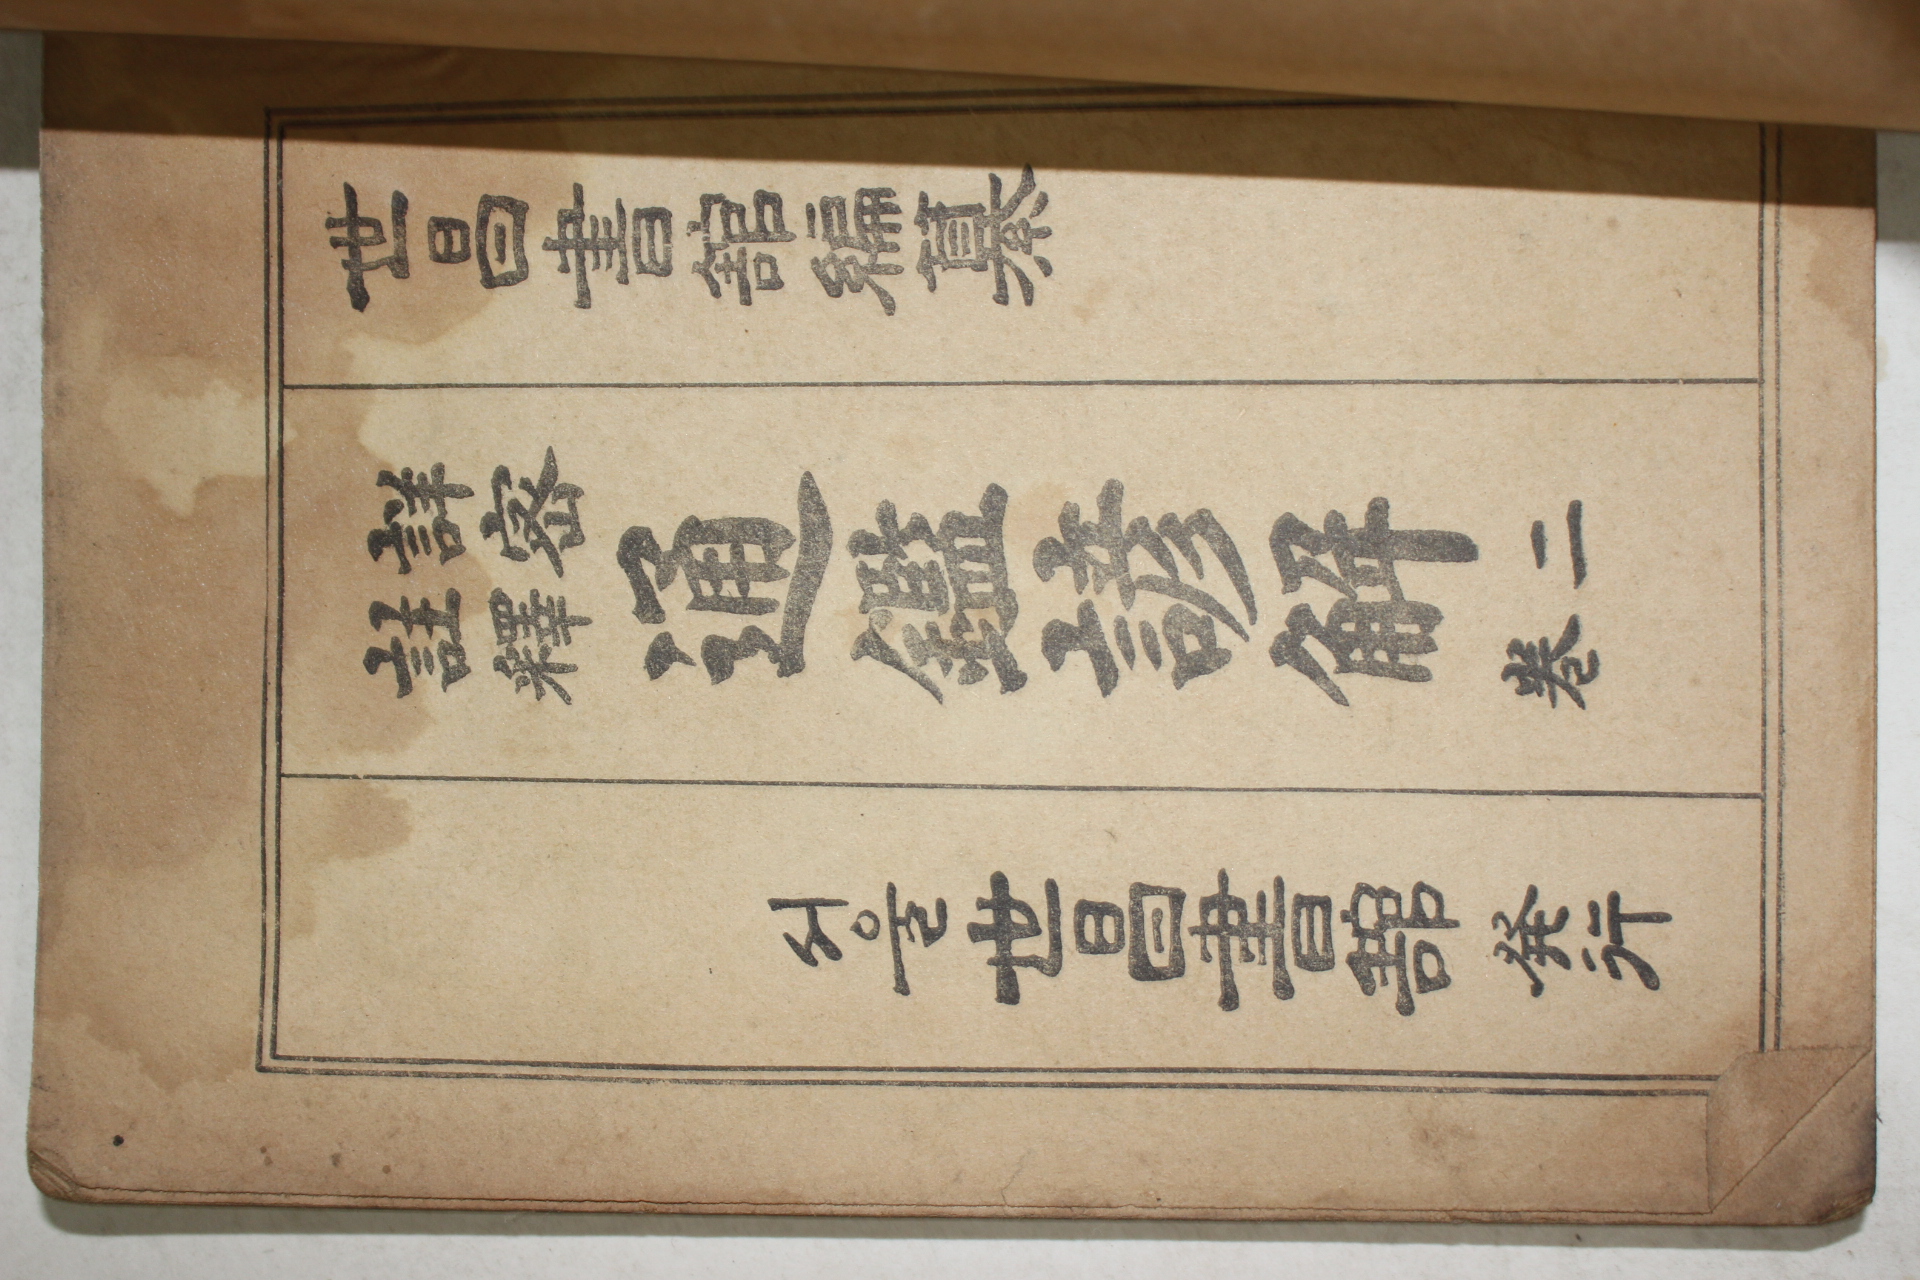 世昌書館編纂
詳密
註釋
通鑑諺解 卷二
서울 世昌書館 発行